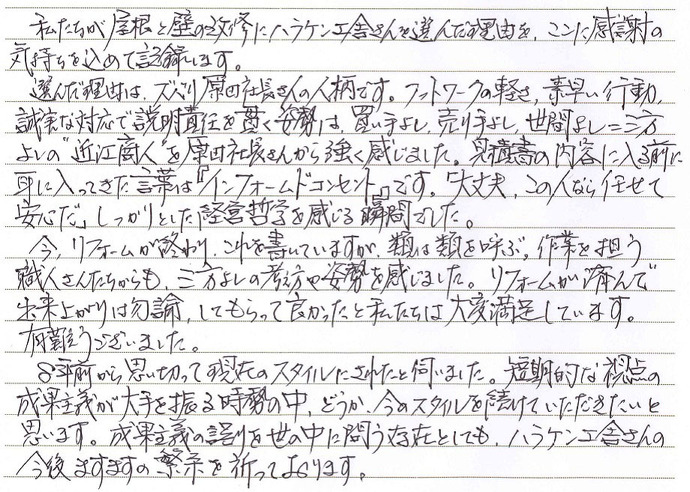 私たちが屋根と壁の改修にハラケン工舎さんを選んだ理由を、ここに感謝の
気持ちを込めて記録します。
選んだ理由は、ズバリ原田社長さんの人柄です。フットワークの軽さ、素早い行動、
誠実な対応で説明責任を貫く姿勢は、買い手よし、売り手よし、世間よし=三方
よしの"近江商人"を原田社長さんから強く感じました。見積書の内容に入る前に
耳に入ってきた言葉は『インフォームドコンセント』です。「大丈夫、この人なら任せて
安心だ」しっかりとした経営哲学を感じる瞬間でした。
今、リフォームが終わり、これを書いていますが、類は類を呼ぶ。作業を担う
職人さんたちからも、三方よしの考え方や姿勢を感じました。リフォームが済んで
出来上がりは勿論、してもらって良かったと私たちは大変満足しています。
有難うございました。
8年前から思い切って現在のスタイルにされたと伺いました。短期的な視点の
成果主義が大手を振る時勢の中、どうか、今のスタイルを続けていただきたいと
思います。成果主義の誤りを世の中に問う存在としても、ハラケン工舎さんの
今後ますますの繁栄を祈っております。